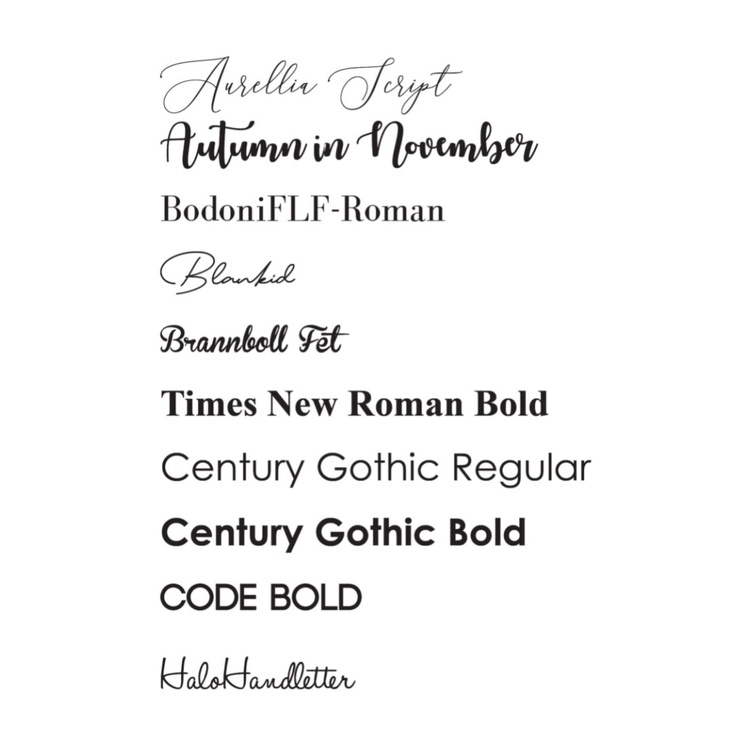 Aurellia Script
Autumn in November
BodoniFLF-Roman
Blankid
Brannboll Fet
Times New Roman Bold
Century Gothic Regular
Century Gothic Bold
CODE BOLD
HaloHandletter